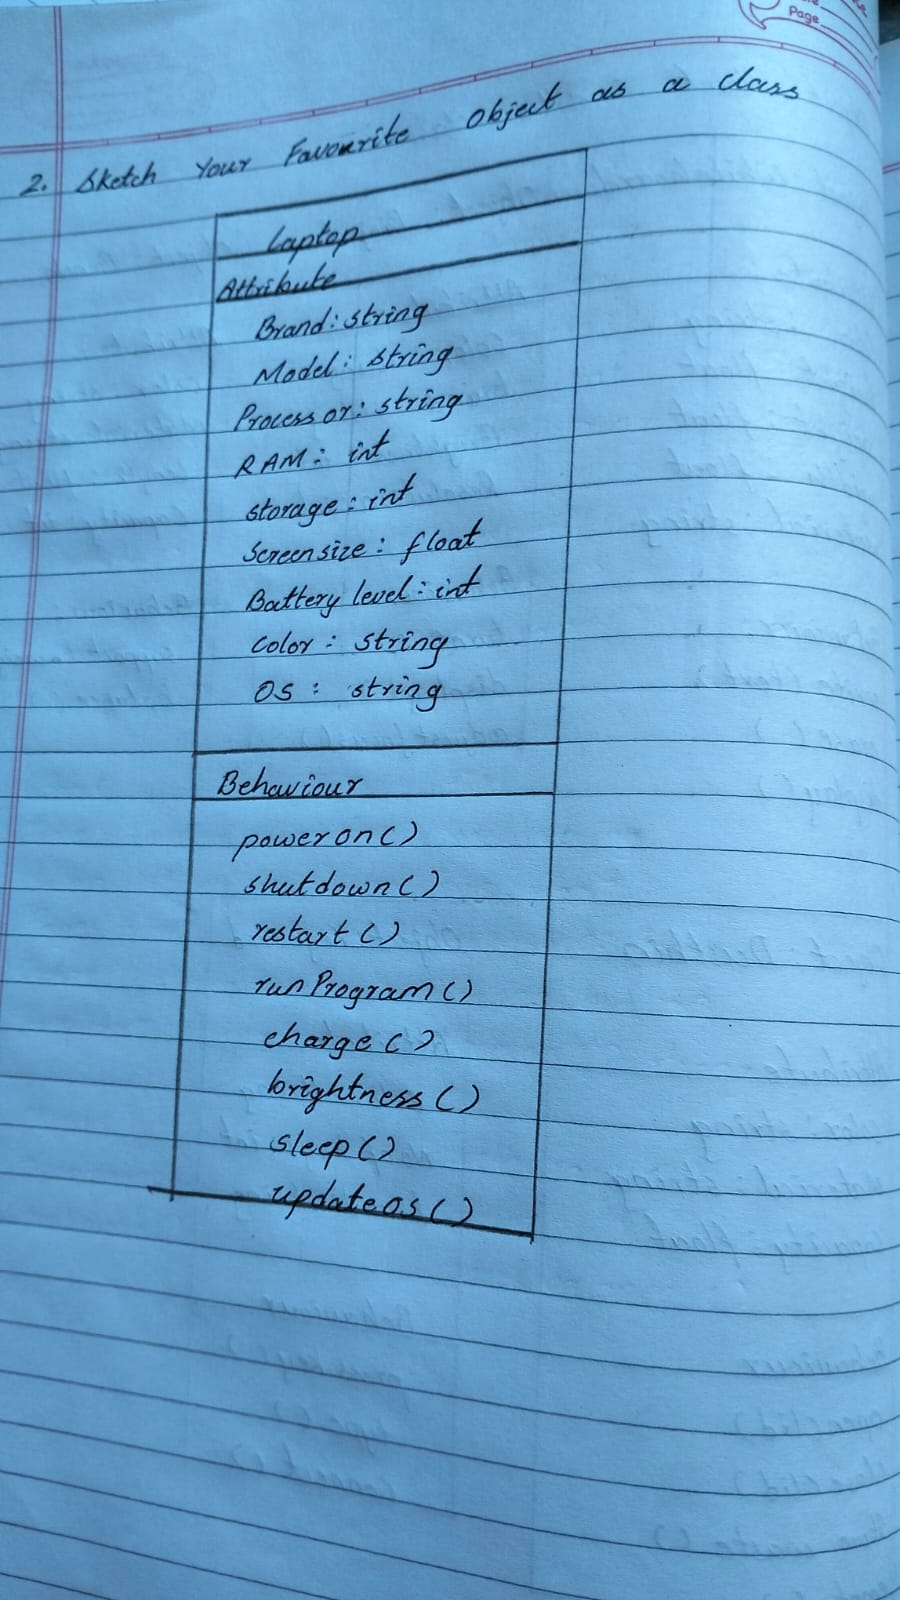 Page
2. Sketch Your Favourite Object as a class
Laptop
Attribute
Brand: string
Model: string
Processor: string
RAM: int
storage: int
Screensize: float
Battery level: int
Color: string
OS: string
Behaviour
poweron()
shutdown()
restart()
runProgram()
charge()
brightness()
sleep()
updateos()